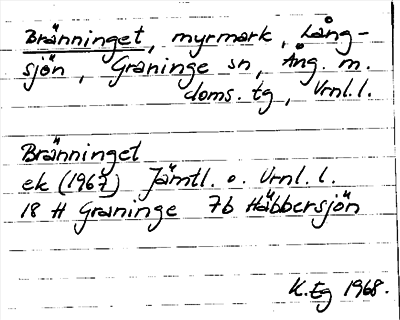 Bränninget, myrmark, Lång-
sjön, Graninge sn, Ång. m.
doms. tg, Vrnl. l.
Bränninget
ek (1967) Jämtl. o. Vrnl. l.
18 H Graninge 7b Häbbersjön
K.tg 1968.